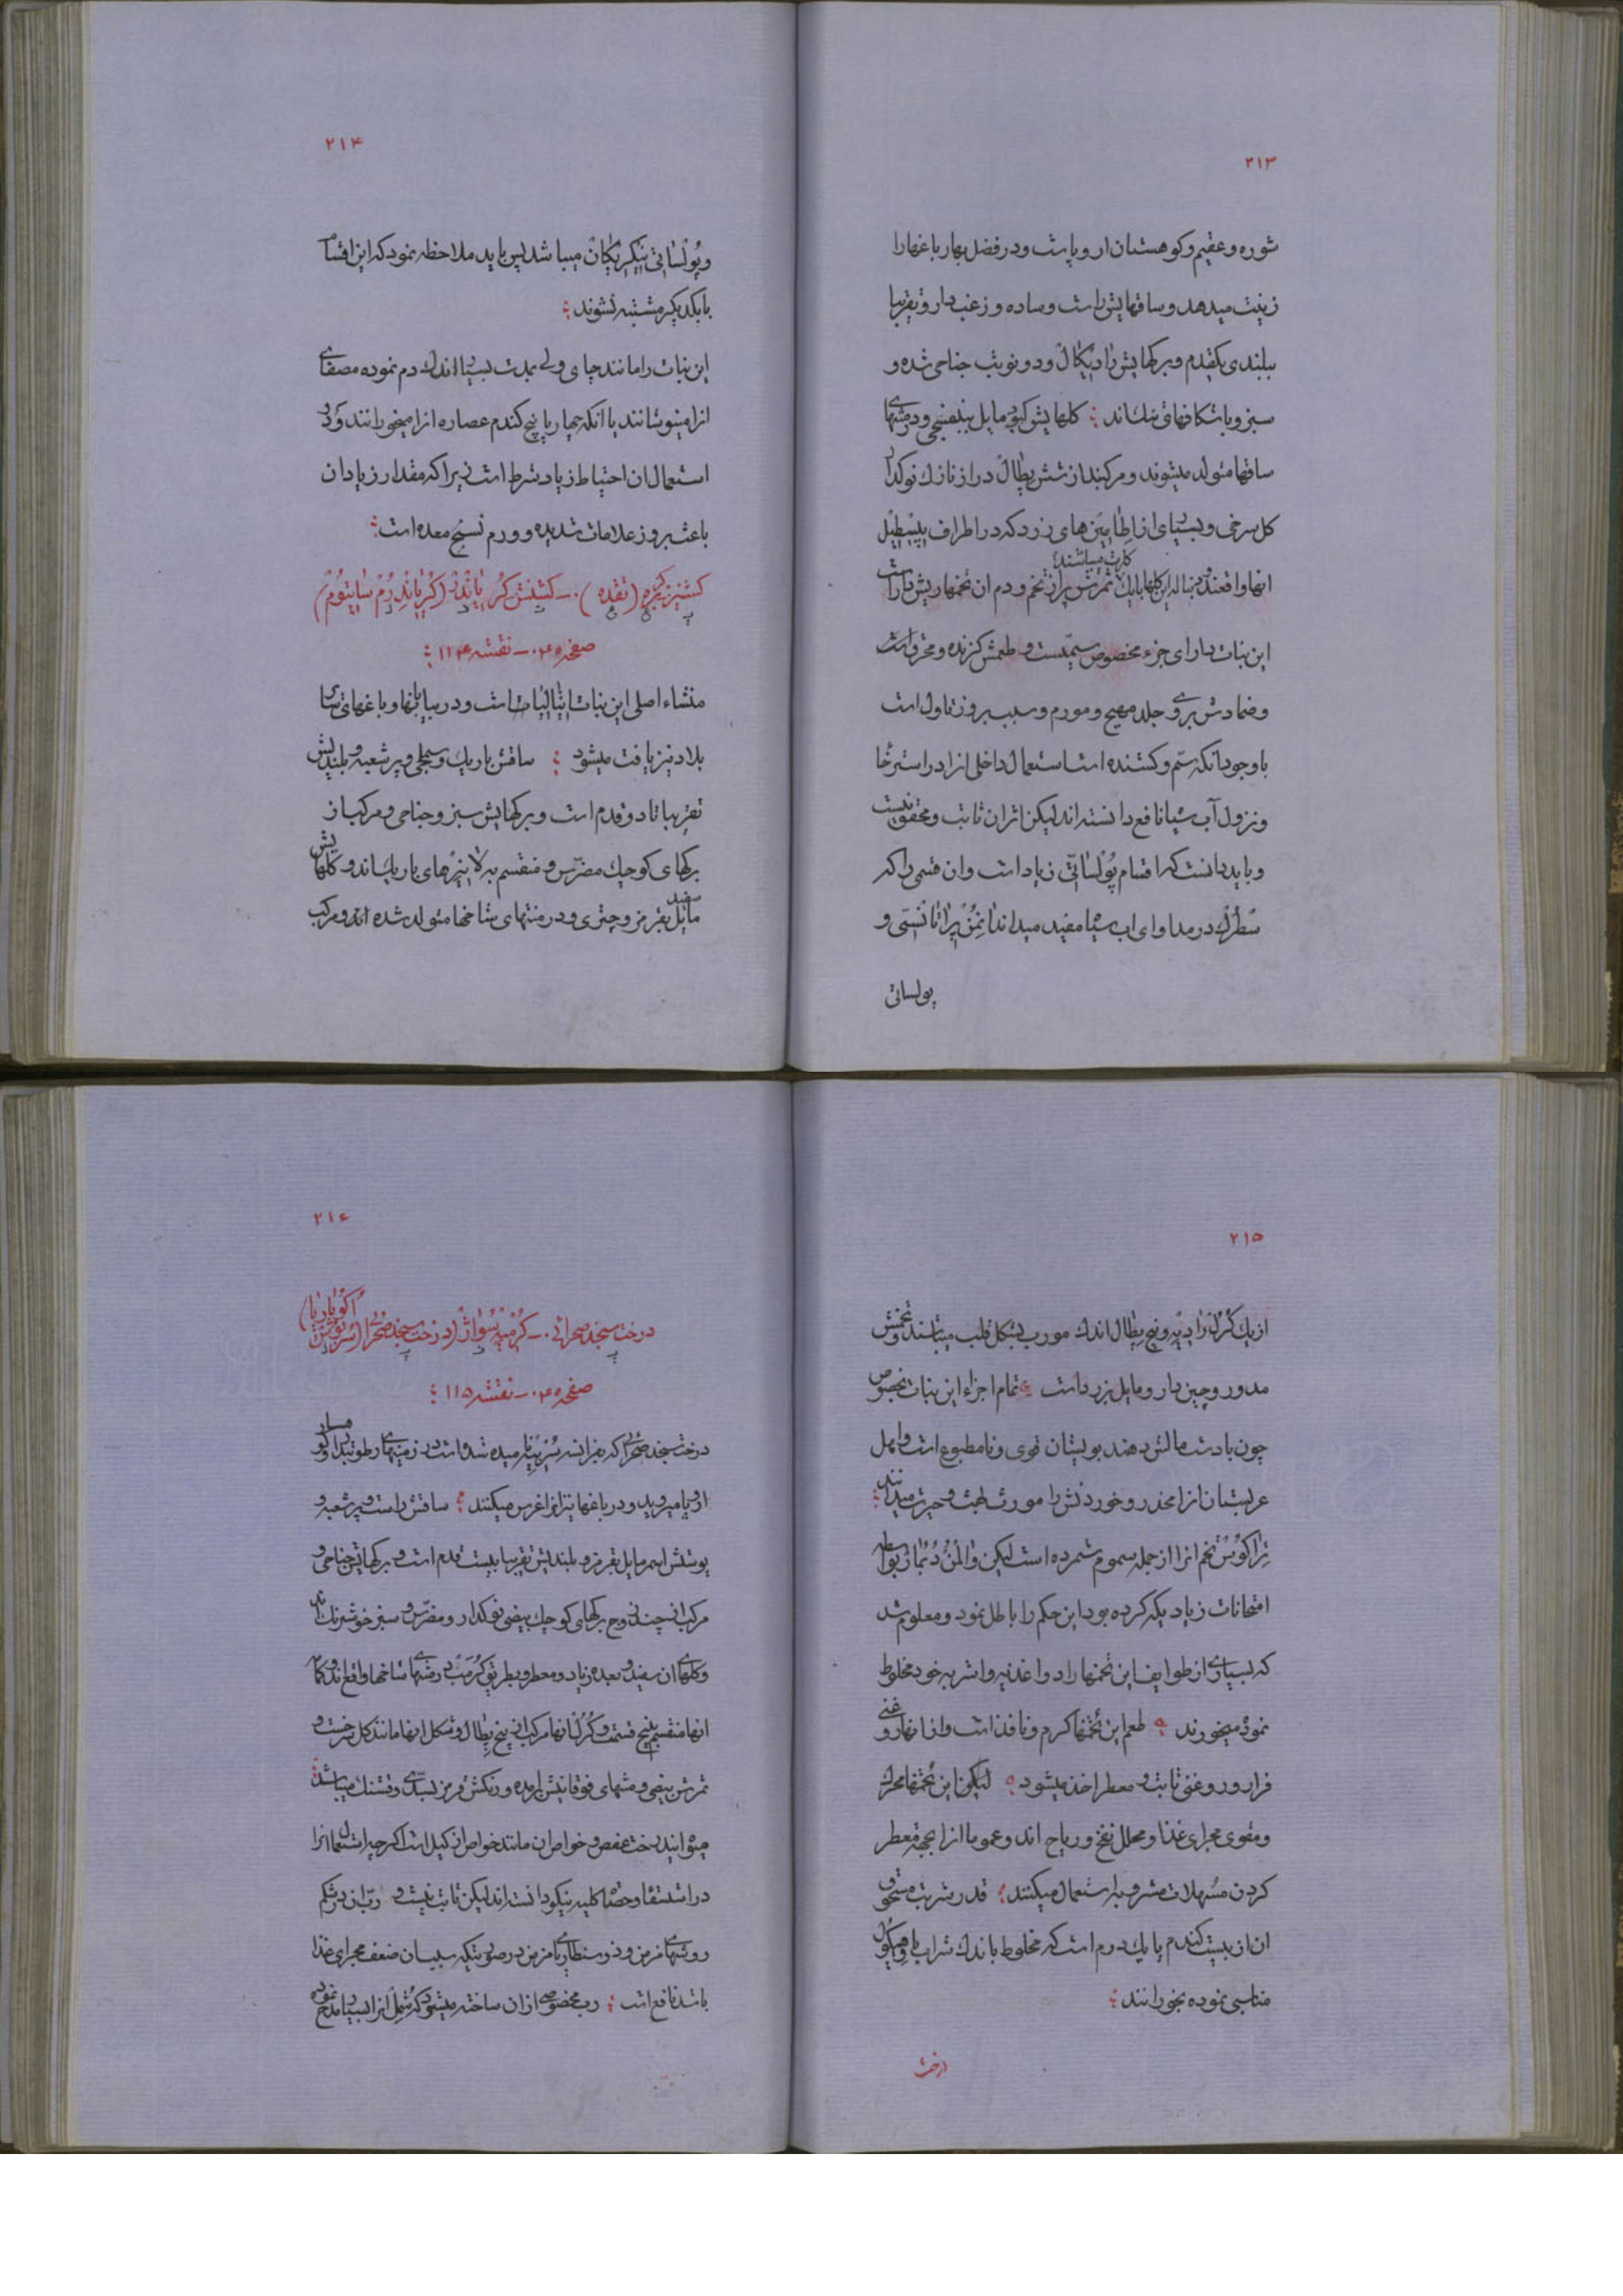 ۲۱۳
شوره و عقیم و کوهستان اروپا است و در فصل بهار باغها را
زینت میدهد و ساقهایش راست و ساده و زغب دار و تقریبا
ببلندی یکقدم و برکهایش رادیکال و دو نوبت جناحی شده و
سبز و با شکافهای تنك اند ؛ کلهایش کبود مایل ببنفشی و در منتهای
ساقها متولد میشوند و مرکبند از شش پطال دراز نازك نوکدار
کل سرخی و بسیاری از اطامین های زرد که در اطراف پیسطیل
انها واقعند دنباله این کلها باریك کارت میباشند؛ ثمرش پر از تخم و دم ان تخمها ریش دار است
این نبات دارای جزء مخصوص سمیست و طعمش کزنده و محرق است
و ضمادش بر روی جلد مهیج و مورم و سبب بروز تاول است
با وجود انکه سم و کشنده است استعمال داخلی انرا در استرخا
و نزول آب سیا نافع دانسته اند لیکن اثر ان ثابت و محقق نیست
و باید دانست که اقسام پولساتی زیاد است و ان قسمی را که
سطرك در مداوای اب سیا مفید میداند انمن پراتانسی و
پولساتی
۲۱۴
و پولساتی نیکریکان میباشد پس باید ملاحظه نمود که این اقسام
با یکدیکر مشتبه نشوند ؛
این نبات را مانند چای ولی بمدت بسیار اندك دم نموده مصفای
انرا مینوشانند یا انکه چهار یا پنج کندم عصاره انرا میخورانند و در
استعمال ان احتیاط زیاد شرط است زیرا که مقدار زیاد ان
باعث بروز علامات شدیده و ورم نسج معده است ؛
کشنیز کزبره (تقده) .- کشنش کریاندر (کریاندرم ساتیوم)
صفحه ۰۴۵ - نقشه ۱۱۴ ؛
منشاء اصلی این نبات ایتالیا است و در بیابانها و باغهای سایر
بلاد نیز یافت میشود ؛ ساقش باریك و سجلی و پر شعبه و بلندیش
تقریبا تا دو قدم است و برکهایش سبز و جناحی و مرکب از
برکهای کوچك مضرس و منقسم به لانیرهای باریك اند و کلهایش
سفید مایل بقرمز و چتری و در منتهای شاخها متولد شده اند و مرکب
۲۱۵
از یك کرل رادیه و پنج پطال اندك مورب بشکل قلب میباشند و تخمش
مدور و چین دار و مایل بزرد است ؛ تمام اجزاء این نبات بخصوص
چون با دست مالش دهند بویشان قوی و نامطبوع است و اهل
عربستان انرا مخدر و خوردنش را مورث لهث و حیرت میدانند ؛
تراکوس تخم انرا از جمله سموم شمرده است لیکن والمن دبمار بواسطه
امتحانات زیادیکه کرده بود این حکم را باطل نمود و معلوم شد
که بسیاری از طوایف این تخمها را در اغذیه و اشربه خود مخلوط
نموده میخورند ؛ طعم این تخمها کرم و نافذ است و از انها روغنی
فرار و روغنی ثابت و معطر اخذ میشود ؛ لیکن این تخمها محرك
و مقوی مجرای غذا و محلل نفخ و ریاح اند و عموما انرا بجهة معطر
کردن مسهلات مشروبه استعمال میکنند ؛ قدر شربت مسحوق
ان از بیست کندم یا یك درم است که مخلوط باندك شراب یا وهیکول
مناسبی نموده بخورانند ؛
درخت
۲۱۶
درخت سنجد صحرائی .- کرمیه سواژ (درخت سنجد صحرا) (سربوس اکوپاریا)
صفحه ۰۴۵ - نقشه ۱۱۵ ؛
درخت سنجد صحرا که بفرانسه سربیه نامیده شده است در زمینهای رطوبتدار و کوهسار
اروپا میروید و در باغها نیز انرا غرس میکنند ؛ ساقش راست و پر شعبه و
پوستش اسمر مایل بقرمز و بلندیش تقریبا بیست قدم است و برکهایش جناحی و
مرکب از چندین زوج برکهای کوچك بیضی نوکدار و مضرس و سبز خوشرنك اند
و کلهای ان سفید و بعده زیاد و معطر و بطریق کرمب در منتهای شاخها واقع اند و کاسه
انها منقسم به پنج قسمت و کرل انها مرکب از پنج پطال و شکل انها مانند کل سرخست و
ثمرش بیضی و منتهای فوقانیش بریده و رنکش قرمز بسدی و قشنك میباشد ؛
میوه ایندرخت عفص و خواص ان مانند خواص ازکیل است اکرچه استعمال انرا
در استسقا و حصاة کلیه نیکو دانسته اند لیکن ثابت نیست و رب ان در شکم
رویشهای مزمن و ذوسنطاریای مزمن در صورتیکه سبب ان ضعف مجرای غذا
باشد نافع است ؛ رب مخصوصی از ان ساخته میشود که شمل انرا بسیار مدح نموده